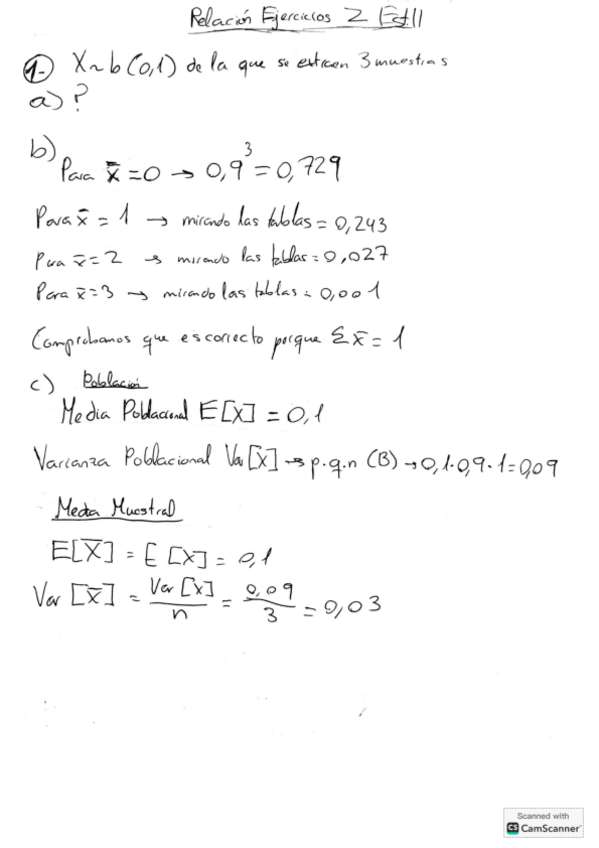 Relación Ejercicios 2 Est II
1- X~b(0,1) de la que se extraen 3 muestras
a) ?
b)
Para x̄ = 0 → 0,9³ = 0,729
Para x̄ = 1 → mirando las tablas = 0,243
Para x̄ = 2 → mirando las tablas = 0,027
Para x̄ = 3 → mirando las tablas = 0,001
Comprobamos que es correcto porque Σx̄ = 1
c) Población
Media Poblacional E[X] = 0,1
Varianza Poblacional Var[X] → p.q.n (B) → 0,1·0,9·1 = 0,09
Media Muestral
E[X̄] = E[X] = 0,1
Var [x̄] = Var [x] / n = 0,09 / 3 = 0,03
Scanned with
CS CamScanner